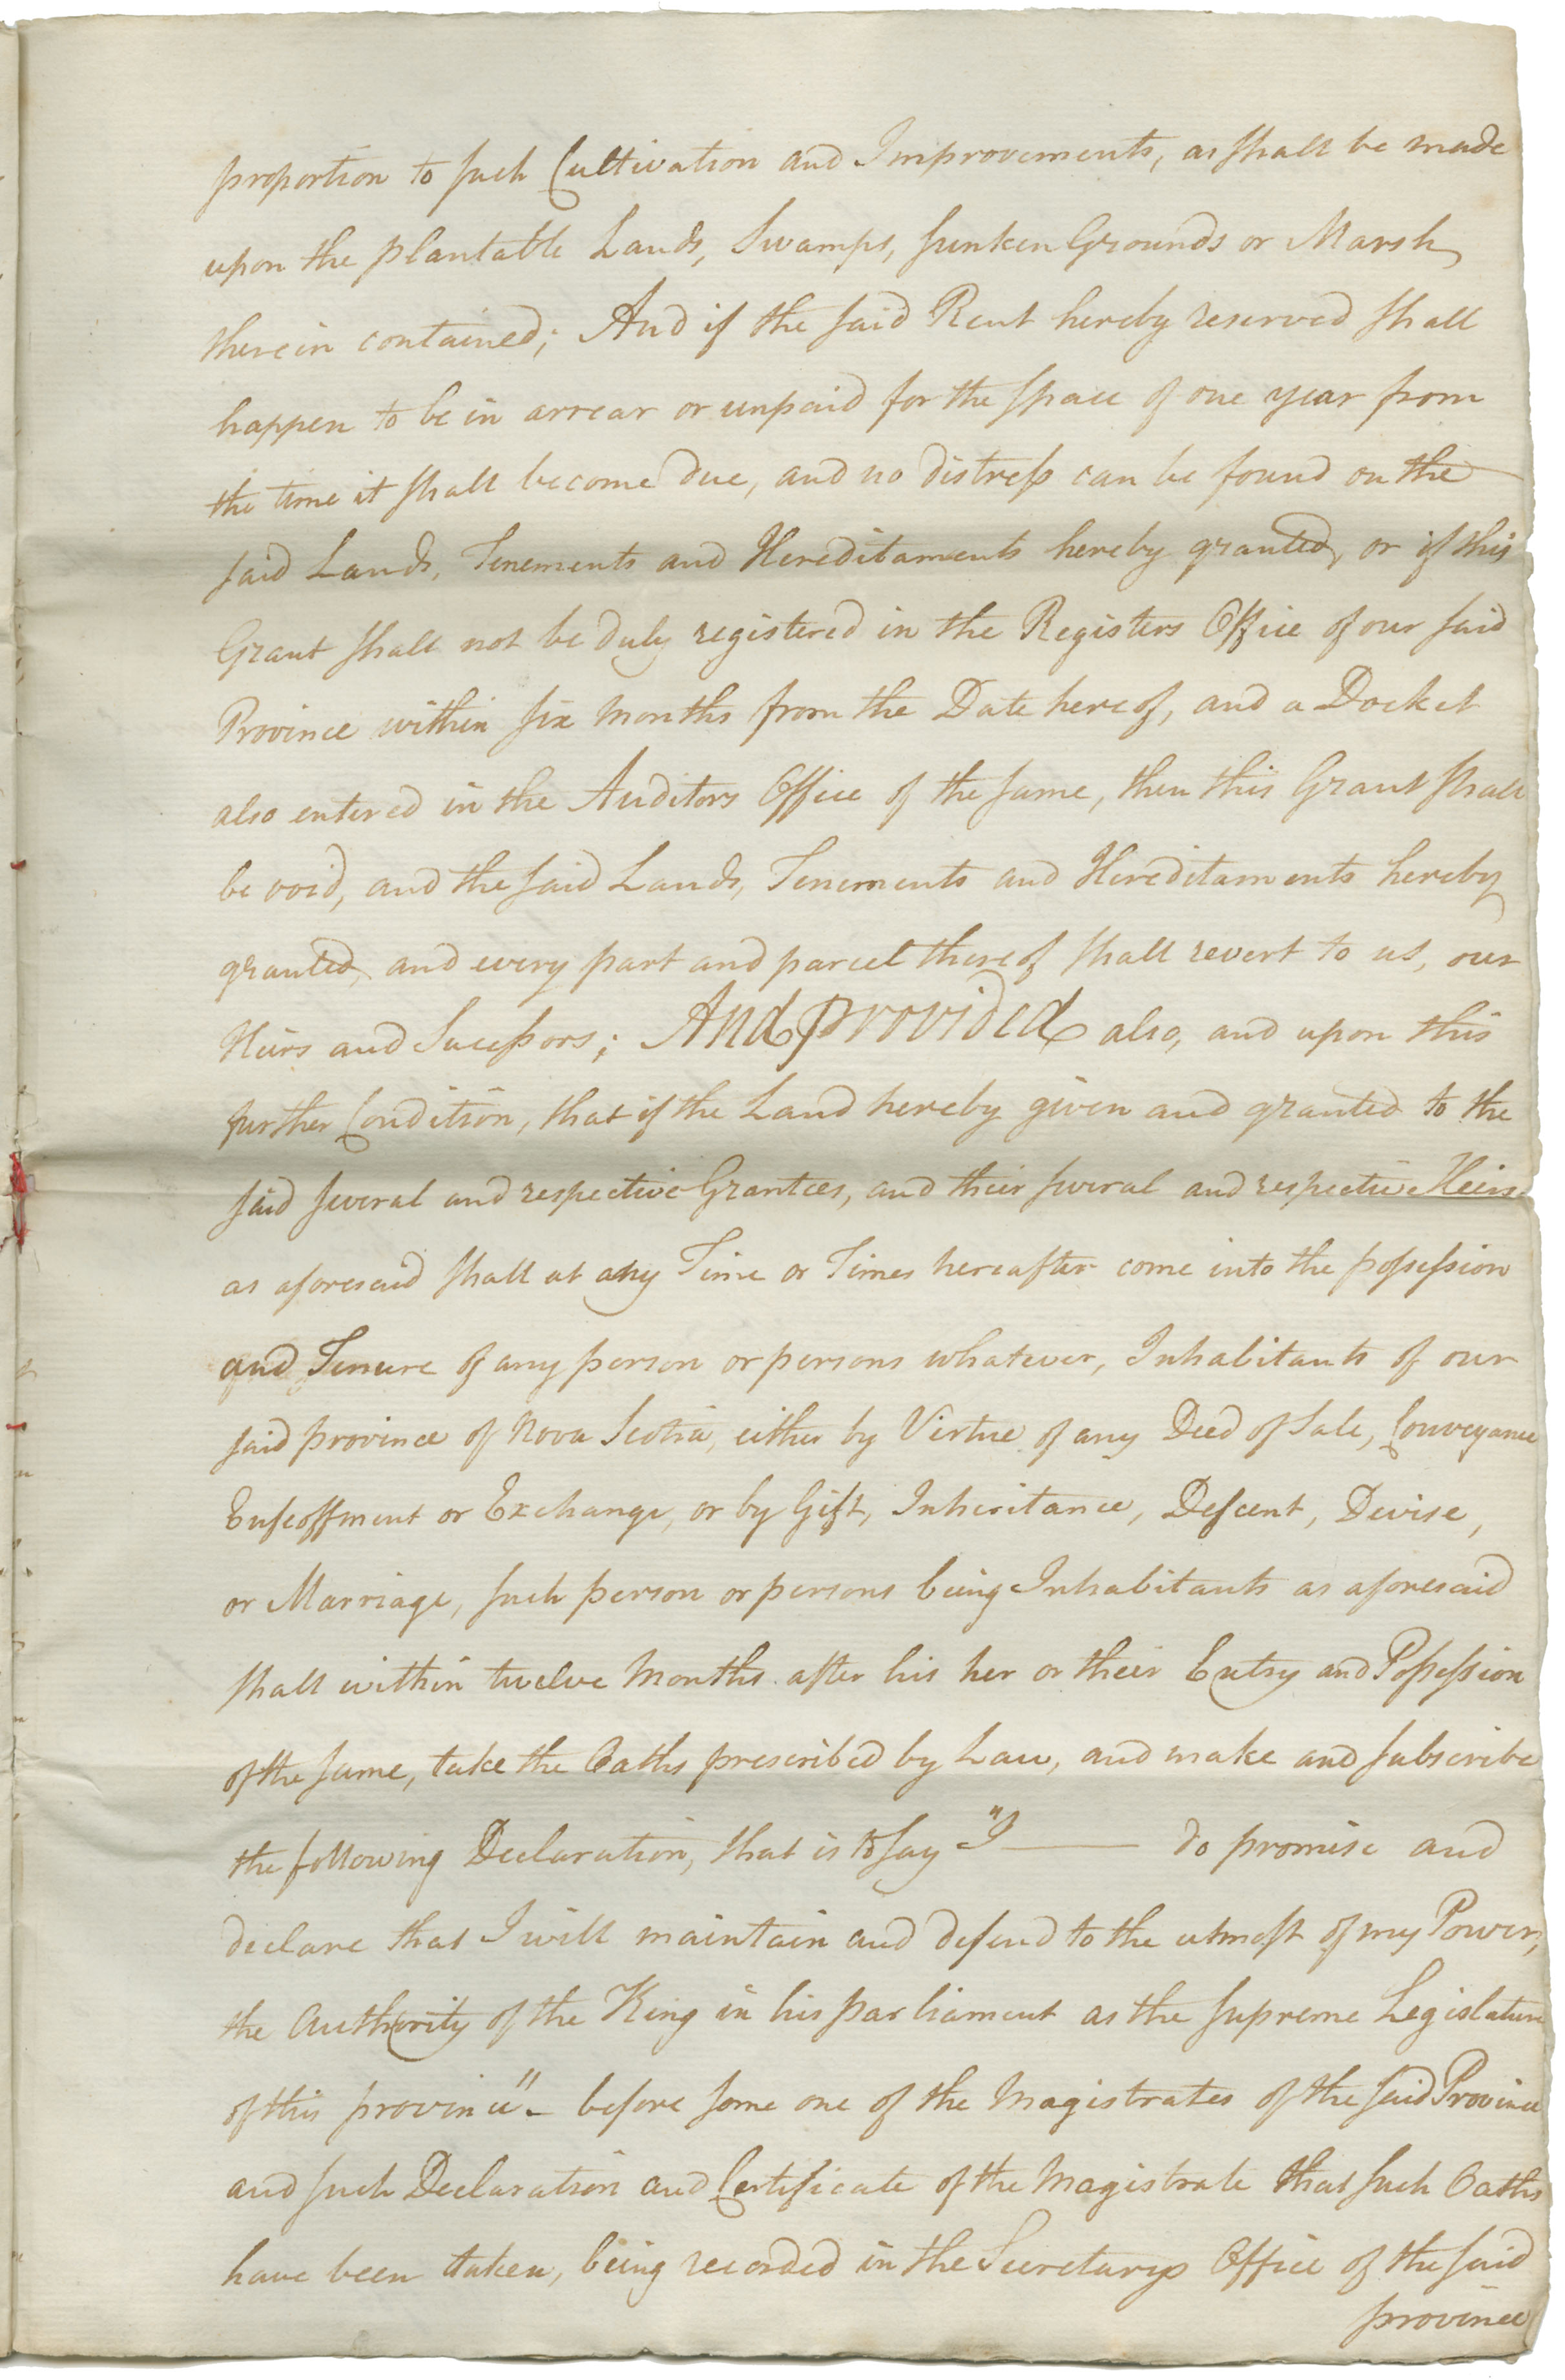 proportion to such Cultivation and Improvements, as shall be made
upon the plantable Lands, Swamps, sunken Grounds or Marsh
therein contained; And if the said Rent hereby reserved shall
happen to be in arrear or unpaid for the space of one year from
the time it shall become due, and no distress can be found on the
said Lands, Tenements and Hereditaments hereby granted, or if this
Grant shall not be duly registered in the Registers Office of our said
Province within six Months from the Date hereof, and a Docket
also entered in the Auditors Office of the same, then this Grant shall
be void, and the said Lands, Tenements and Hereditaments hereby
granted, and every part and parcel thereof shall revert to us, our
Heirs and Sucessors; And provided also, and upon this
further Condition, that if the Land hereby given and granted to the
said several and respective Grantees, and their several and respective Heirs
as aforesaid shall at any Time or Times hereafter come into the possession
and Tenure of any person or persons whatever, Inhabitants of our
said province of Nova Scotia, either by Virtue of any Deed of Sale, Conveyance
Enfeoffment or Exchange, or by Gift, Inheritance, Descent, Devise,
or Marriage, such person or persons being Inhabitants as aforesaid
shall within twelve Months after his her or their Entry and Possession
of the same, take the Oaths prescribed by Law, and make and subscribe
the following Declaration, that is to say "I —— do promise and
declare that I will maintain and defend to the utmost of my Power,
the Authority of the King in his parliament as the supreme Legislature
of this province" - before some one of the Magistrates of the said Province
and such Declaration and Certificate of the Magistrate that such Oaths
have been taken, being recorded in the Secretarys Office of the said
province